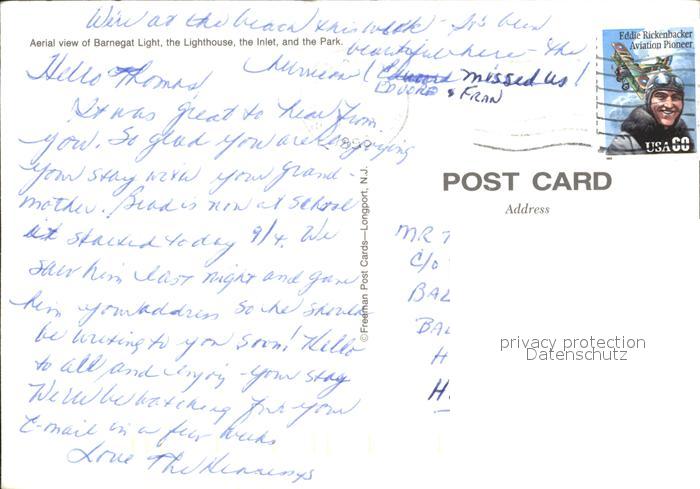 We're at the beach this week - It's been
beautiful here - The
hurricane (Edouard missed us!
EDUORD & FRAN
Aerial view of Barnegat Light, the Lighthouse, the Inlet, and the Park.
Hello Thomas
It was great to hear from
you. So glad you are enjoying
your stay with your grand-
mother. Brad is now at school
it started today 9/4. We
saw him last night and gave
him your address so he should
be writing to you soon! Hello
to all, and enjoy - your stay
We'll be watching for your
E-mail in a few weeks
Love The Hennessys
©Freeman Post Cards—Longport, N.J.
Eddie Rickenbacker
Aviation Pioneer
USA 60
POST CARD
Address
MR T
C/O
BAL
BAL
H
H
privacy protection
Datenschutz